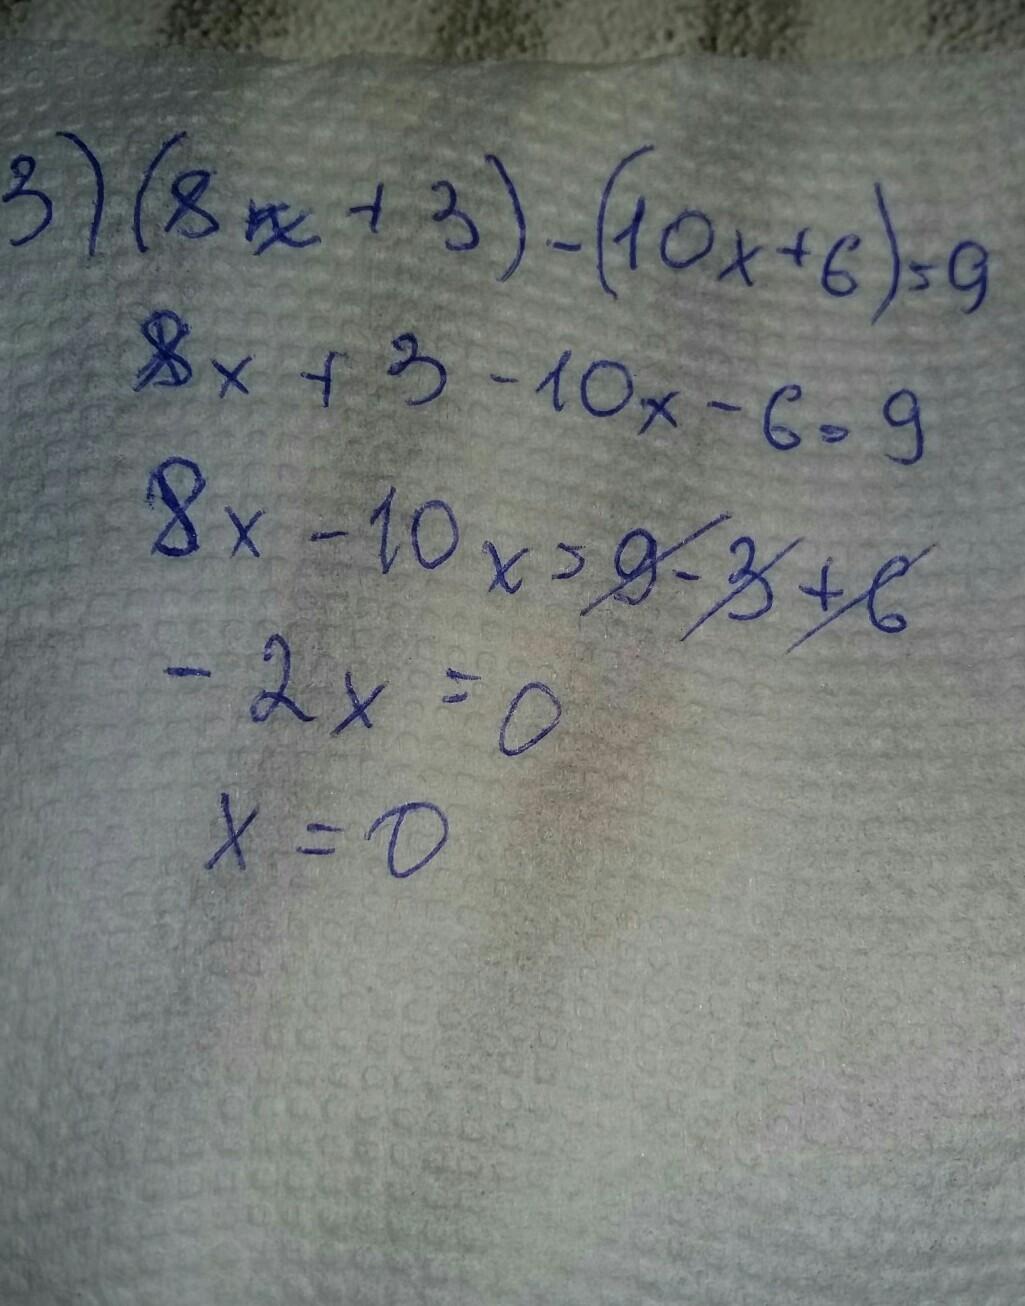 3) (8x + 3) - (10x + 6) = 9
8x + 3 - 10x - 6 = 9
8x - 10x = 9 - 3 + 6
- 2x = 0
x = 0